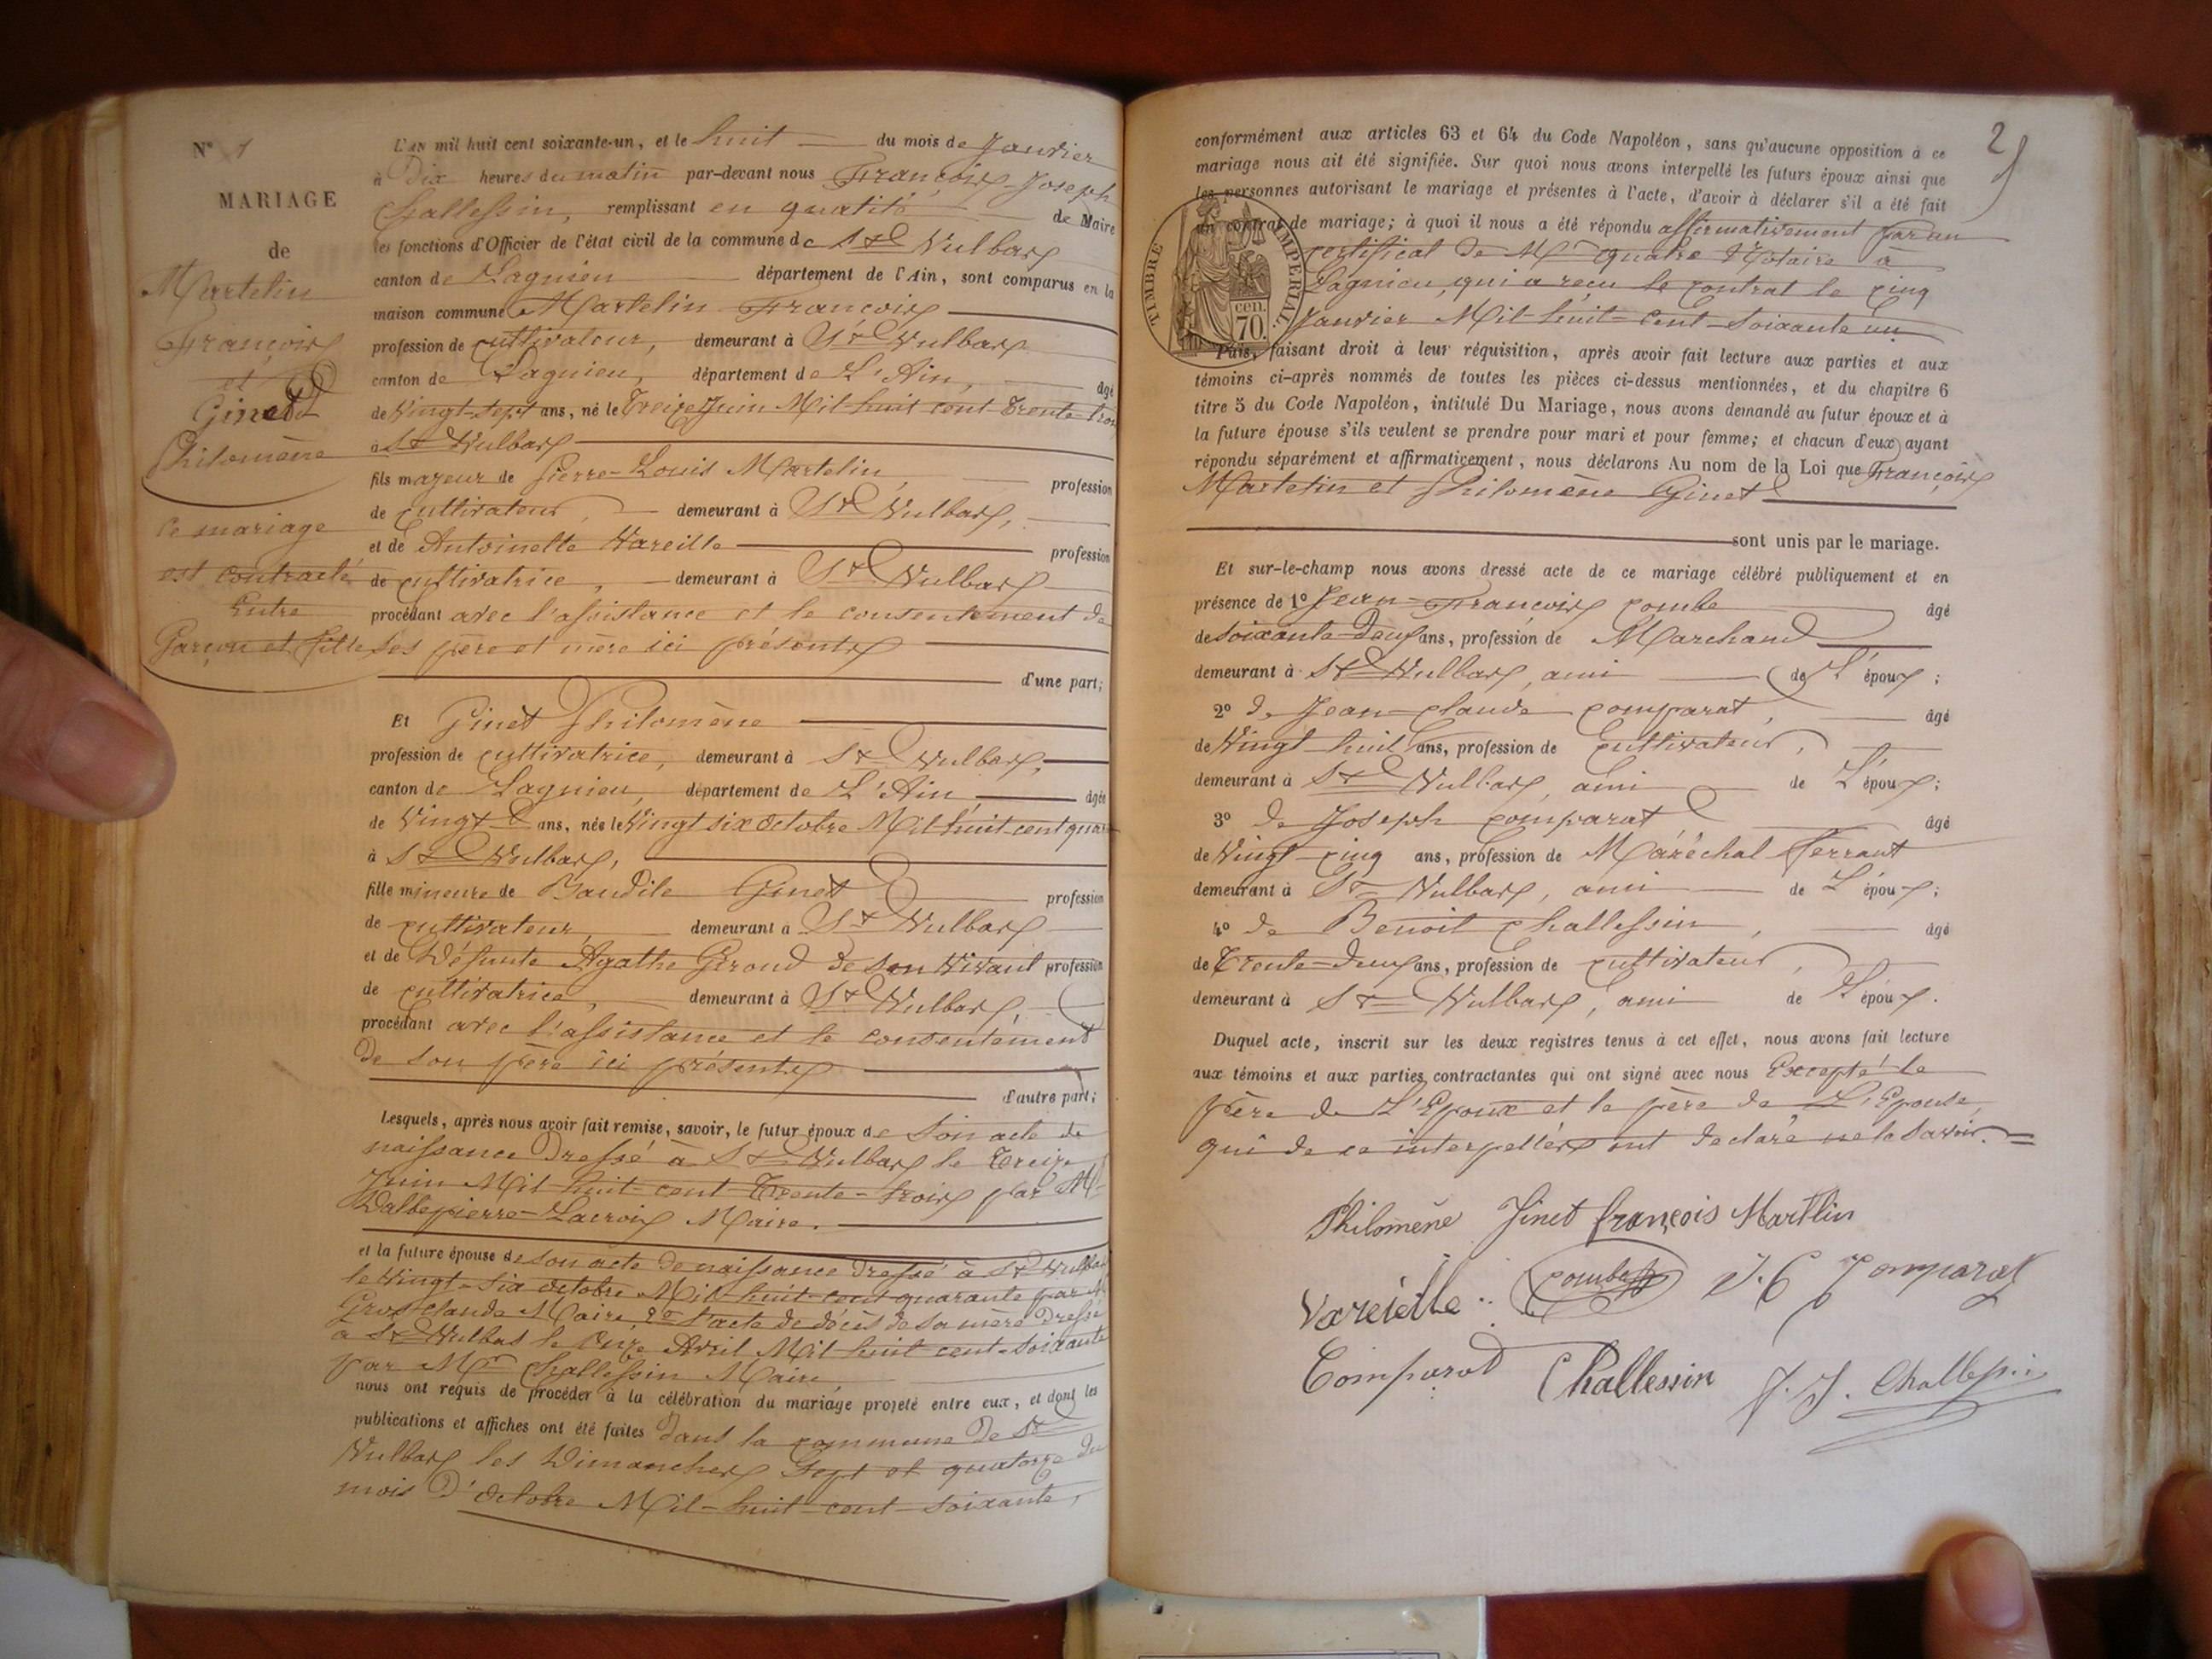 N° 1
MARIAGE
de
Martelin
François
et
Ginet
Philomène
ce mariage
est contracté
Entre
Garçon et fille
L'AN mil huit cent soixante-un, et le huit du mois de Janvier
à Dix heures du matin par-devant nous François-Joseph
Challessin, remplissant en qualité de Maire
les fonctions d'Officier de l'état civil de la commune de St Vulbas
canton de Lagnieu département de l'Ain, sont comparus en la
maison commune Martelin François
profession de cultivateur, demeurant à St Vulbas
canton de Lagnieu, département de L'Ain, âgé
de Vingt-sept ans, né le Treize Juin Mil huit cent Trente trois
à St Vulbas
fils majeur de Pierre-Louis Martelin profession
de cultivateur, demeurant à St Vulbas,
et de Antoinette Vareille profession
de cultivatrice, demeurant à St Vulbas
procédant avec l'assistance et le consentement de
ses père et mère ici présents
d'une part;
Et Ginet Philomène
profession de cultivatrice, demeurant à St Vulbas,
canton de Lagnieu, département de L'Ain, âgée
de Vingt ans, née le Vingt six Octobre Mil huit cent quar
à St Vulbas,
fille mineure de Baudile Ginet profession
de cultivateur, demeurant à St Vulbas
et de Défunte Agathe Giroud de son Vivant profession
de cultivatrice, demeurant à St Vulbas,
procédant avec l'assistance et le consentement
De son père ici présents
d'autre part;
Lesquels, après nous avoir fait remise, savoir, le futur époux de Son acte de
naissance Dressé à St Vulbas le Treize
Juin Mil huit-cent Trente-trois par M
Dallepierre-Lacroix Maire.
et la future épouse de son acte de naissance dressé à St Vulbas
le Vingt-six octobre Mil-huit-cent quarante par M
Gros claude Maire, 2° l'acte de décès de sa mère Dressé
à St Vulbas le Onze Avril Mil huit cent-Soixante
par Mr Challessin Maire
nous ont requis de procéder à la célébration du mariage projeté entre eux, et dont les
publications et affiches ont été faites Dans la commune De St
Vulbas les Dimanches Sept et quatorze du
mois D'octobre Mil-huit-cent-soixante,
2
conformément aux articles 63 et 64 du Code Napoléon, sans qu'aucune opposition à ce
mariage nous ait été signifiée. Sur quoi nous avons interpellé les futurs époux ainsi que
les personnes autorisant le mariage et présentes à l'acte, d'avoir à déclarer s'il a été fait
un contrat de mariage; à quoi il nous a été répondu affirmativement par un
certificat De Mr quatre Notaire à
Lagnieu, qui a reçu le contrat le cinq
Janvier Mil-huit-Cent-Soixante un
TIMBRE IMPERIAL.
cen.
70.
Puis, faisant droit à leur réquisition, après avoir fait lecture aux parties et aux
témoins ci-après nommés de toutes les pièces ci-dessus mentionnées, et du chapitre 6
titre 5 du Code Napoléon, intitulé Du Mariage, nous avons demandé au futur époux et à
la future épouse s'ils veulent se prendre pour mari et pour femme; et chacun d'eux ayant
répondu séparément et affirmativement, nous déclarons Au nom de la Loi que François
Martelin et Philomène Ginet
sont unis par le mariage.
Et sur-le-champ nous avons dressé acte de ce mariage célébré publiquement et en
présence de 1° Jean-François combe âgé
de soixante-Deux ans, profession de Marchand
demeurant à St Vulbas, ami de L'époux;
2° De Jean-claude comparat, âgé
de Vingt huit ans, profession de cultivateur,
demeurant à St Vulbas, ami de L'époux;
3° De Joseph comparat âgé
de Vingt-cinq ans, profession de Maréchal Ferrant
demeurant à St Vulbas, ami de L'époux;
4° De Benoit challessin, âgé
de Trente-Deux ans, profession de cultivateur,
demeurant à St Vulbas, ami de L'époux.
Duquel acte, inscrit sur les deux registres tenus à cet effet, nous avons fait lecture
aux témoins et aux parties contractantes qui ont signé avec nous Excepté le
père de L'Epoux et le père de L'Epouse,
qui de ce interpellés ont declaré ne le Savoir.
Philomène Ginet françois Martlin
Vareille combe J. C Comparat
Comparat Challessin f. J. Challessin